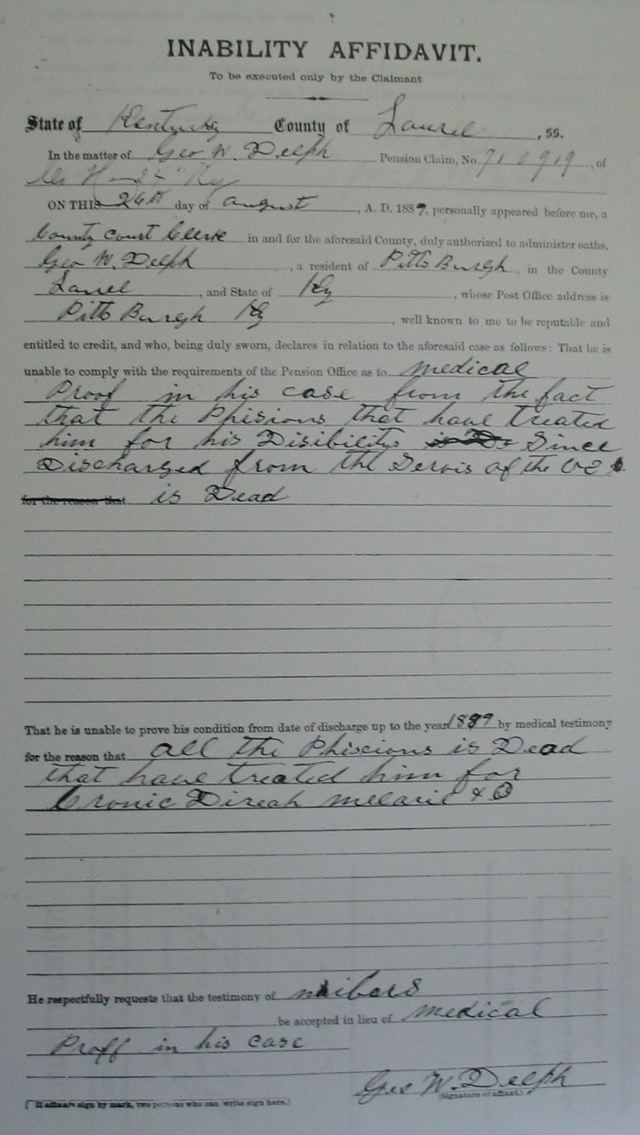 INABILITY AFFIDAVIT.
To be executed only by the Claimant
State of Kentucky County of Laurel, ss.
In the matter of Geo W. Delph Pension Claim, No. 710919, of
ON THIS 26th day of august, A. D. 1889, personally appeared before me, a
County Court Clerk in and for the aforesaid County, duly authorized to administer oaths,
Geo W. Delph, a resident of Pitts Burgh, in the County
Laurel, and State of Ky, whose Post Office address is
Pitts Burgh Ky, well known to me to be reputable and
entitled to credit, and who, being duly sworn, declares in relation to the aforesaid case as follows: That he is
unable to comply with the requirements of the Pension Office as to medical
Proof in his case from the fact
that the Phisions that have treated
him for his Disibility Since
Discharged from the Servis of the US
for the reason that is Dead
That he is unable to prove his condition from date of discharge up to the year 1889 by medical testimony
for the reason that all the Phiscions is Dead
that have treated him for
Cronic Direah &
He respectfully requests that the testimony of naibors
be accepted in lieu of medical
Proff in his case
Geo W. Delph
(Signature of affiant.)
(If affiant sign by mark, two persons who can write sign here.)